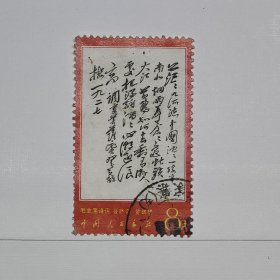 茫茫九派流中国沉沉一线穿
南北烟雨莽苍苍龟蛇锁
大江黄鹤知何去剩有游人
处把酒酹滔滔心潮逐浪
高
一九二七
毛主席诗词 菩萨蛮 黄鹤楼
中国人民邮政
8